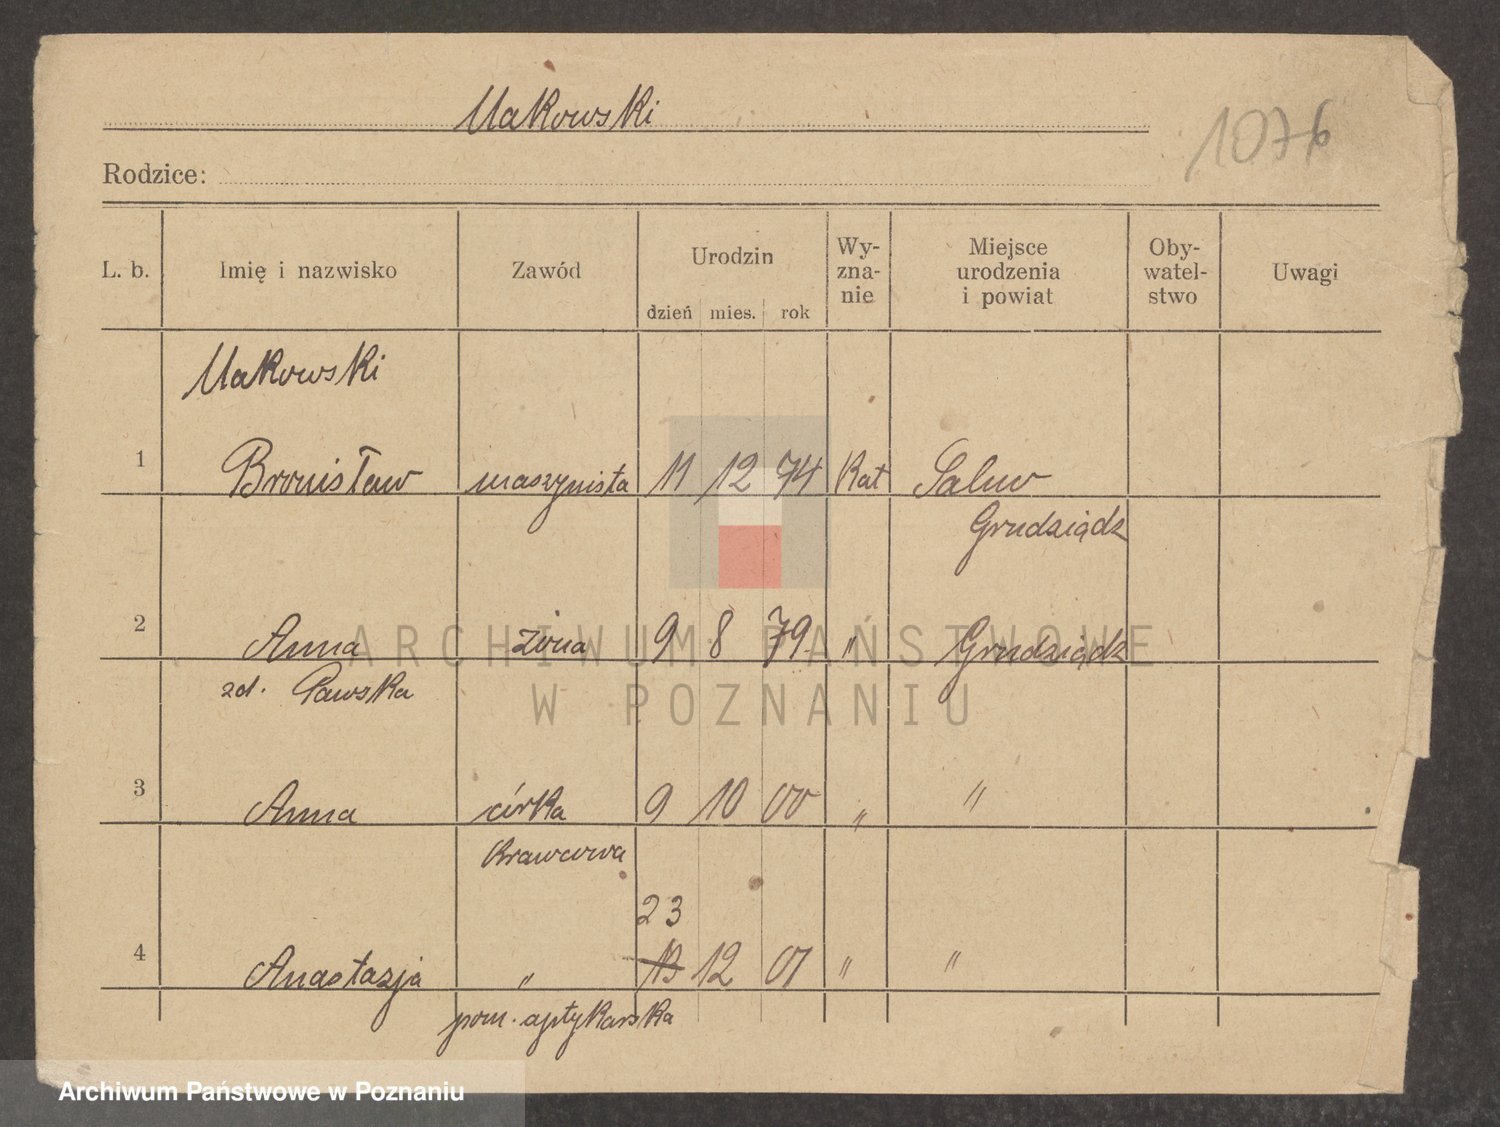 Makowski
1076
Rodzice:
L. b. Imię i nazwisko Zawód Urodzin dzień mies. rok Wy-zna-nie Miejsce urodzenia i powiat Oby-watel-stwo Uwagi
Makowski
1 Bronisław maszynista 11 12 74 Kat Salno
Grudziądz
2 Anna żona 9 8 79. " Grudziądz
zd. Pawska
3 Anna córka 9 10 00 " "
Krawcowa
23
4 Anastazja " 13 12 01 " "
pom. aptykarska
ARCHIWUM PAŃSTWOWE
W POZNANIU
Archiwum Państwowe w Poznaniu